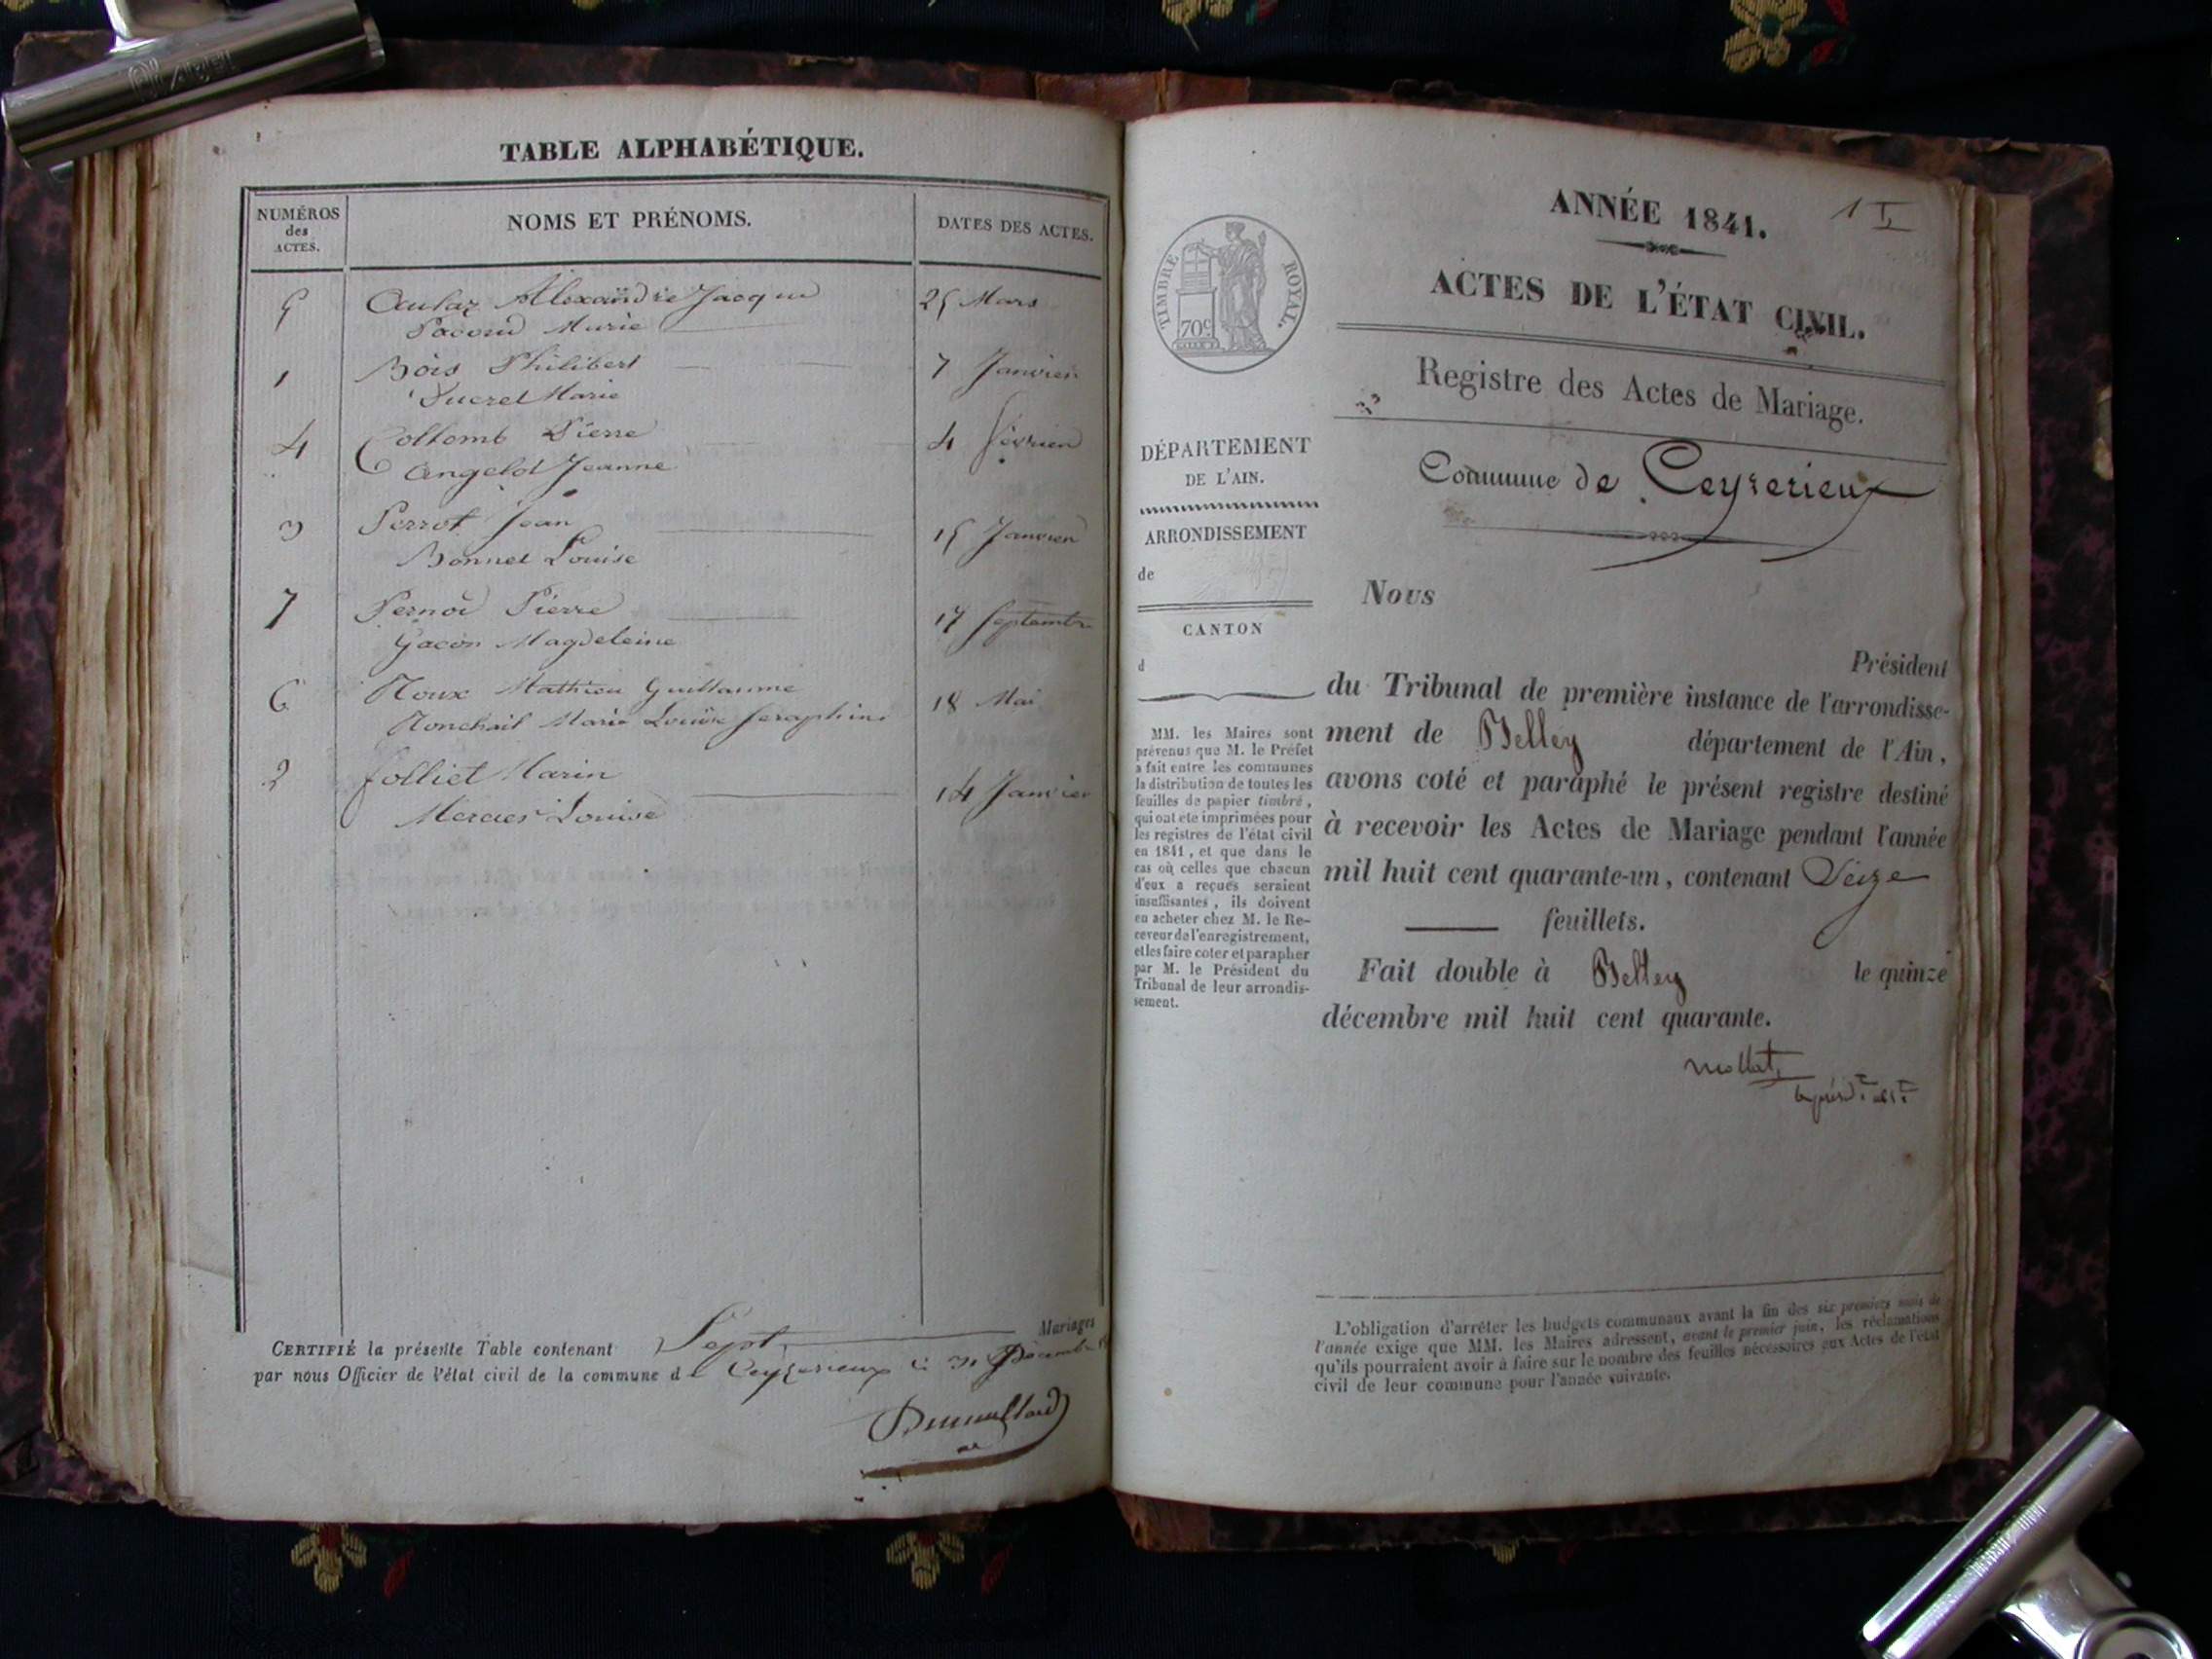 TABLE ALPHABÉTIQUE.
NUMÉROS
des
ACTES.
NOMS ET PRÉNOMS.
DATES DES ACTES.
5 Alexandre Jacque 25 Mars
Pacoud Marie
1 Bois Philibert 7 Janvier
Ducret Marie
4 Collomb Pierre 4 février
Angelot Jeanne
3 Perrot Jean 15 Janvier
Bonnet Louise
7 Pernod Pierre 17 Septembre
Gacon Magdeleine
6 Roux Mathieu Guillaume 18 Mai
Marie Louise Seraphine
2 Jolliet Marin 14 Janvier
Mercier Louise
CERTIFIÉ la présente Table contenant Sept Mariages
par nous Officier de l'état civil de la commune de Ceyzerieux 31 Décembre
ANNÉE 1841.
1
ACTES DE L'ÉTAT CIVIL.
Registre des Actes de Mariage.
Commune de Ceyzerieux
TIMBRE ROYAL.
70c
DÉPARTEMENT
DE L'AIN.
ARRONDISSEMENT
de
CANTON
d
MM. les Maires sont
prévenus que M. le Préfet
a fait entre les communes
la distribution de toutes les
feuilles de papier timbré,
qui ont été imprimées pour
les registres de l'état civil
en 1841, et que dans le
cas où celles que chacun
d'eux a reçues seraient
insuffisantes, ils doivent
en acheter chez M. le Re-
ceveur de l'enregistrement,
et les faire coter et parapher
par M. le Président du
Tribunal de leur arrondis-
sement.
Nous
Président
du Tribunal de première instance de l'arrondisse-
ment de Belley département de l'Ain,
avons coté et paraphé le présent registre destiné
à recevoir les Actes de Mariage pendant l'année
mil huit cent quarante-un, contenant Seize
feuillets.
Fait double à Belley le quinze
décembre mil huit cent quarante.
Mollat
L'obligation d'arrêter les budgets communaux avant la fin des six premiers mois de
l'année exige que MM. les Maires adressent, avant le premier juin, les réclamations
qu'ils pourraient avoir à faire sur le nombre des feuilles nécessaires aux Actes de l'état
civil de leur commune pour l'année suivante.